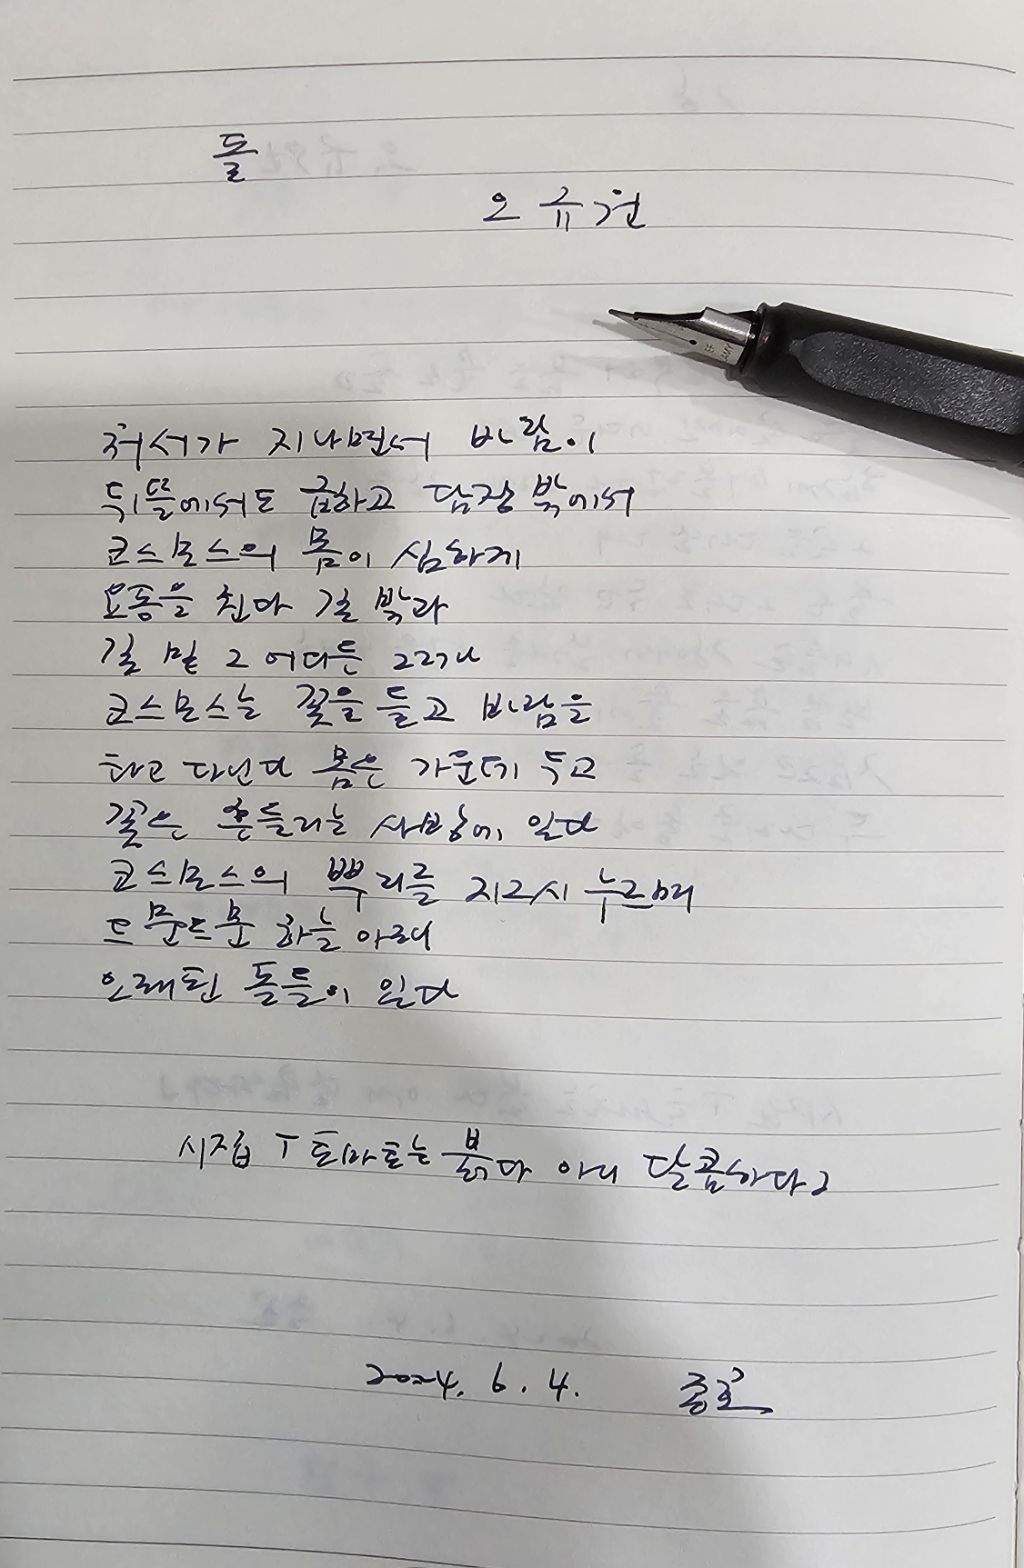 돌
오규원
처서가 지나면서 바람이
뒤뜰에서도 급하고 담장 밖에서
코스모스의 몸이 심하게
요동을 친다 길 밖과
길 밑 그 어디든 그러나
코스모스는 꽃을 들고 바람을
타고 다닌다 몸은 가운데 두고
꽃은 흔들리는 사방에 있다
코스모스의 뿌리를 지그시 누르며
드문드문 하늘 아래
오래된 돌들이 있다
시집 「토마토는 붉다 아니 달콤하다」
2024. 6. 4.